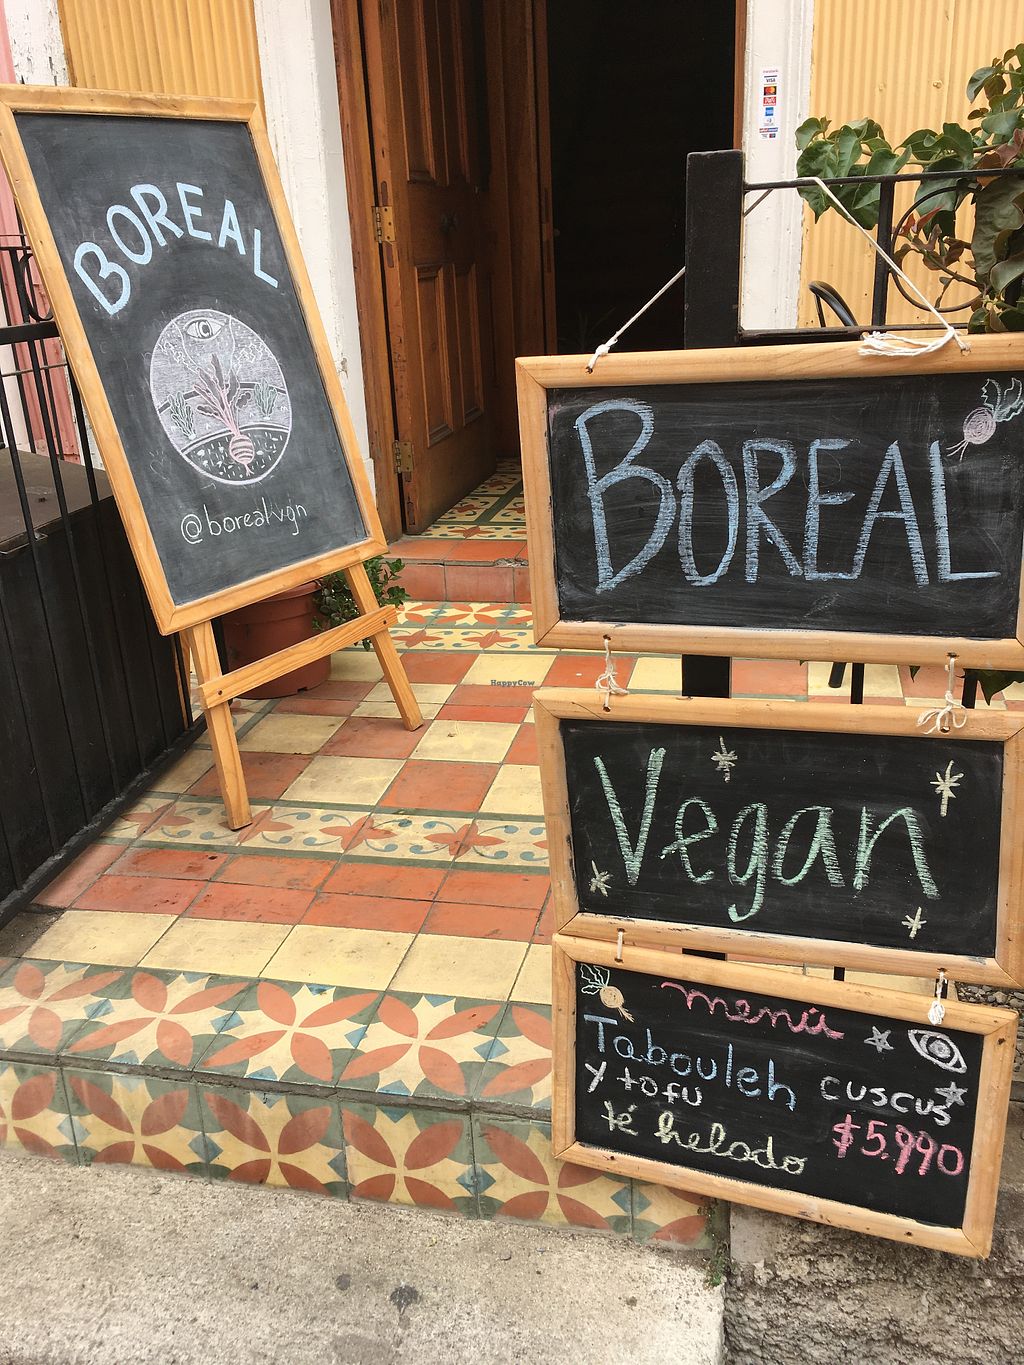 BOREAL
@borealvgn
VISA
HappyCow
BOREAL
Vegan
menú
Tabouleh cuscus
y tofu
té helado $5.990